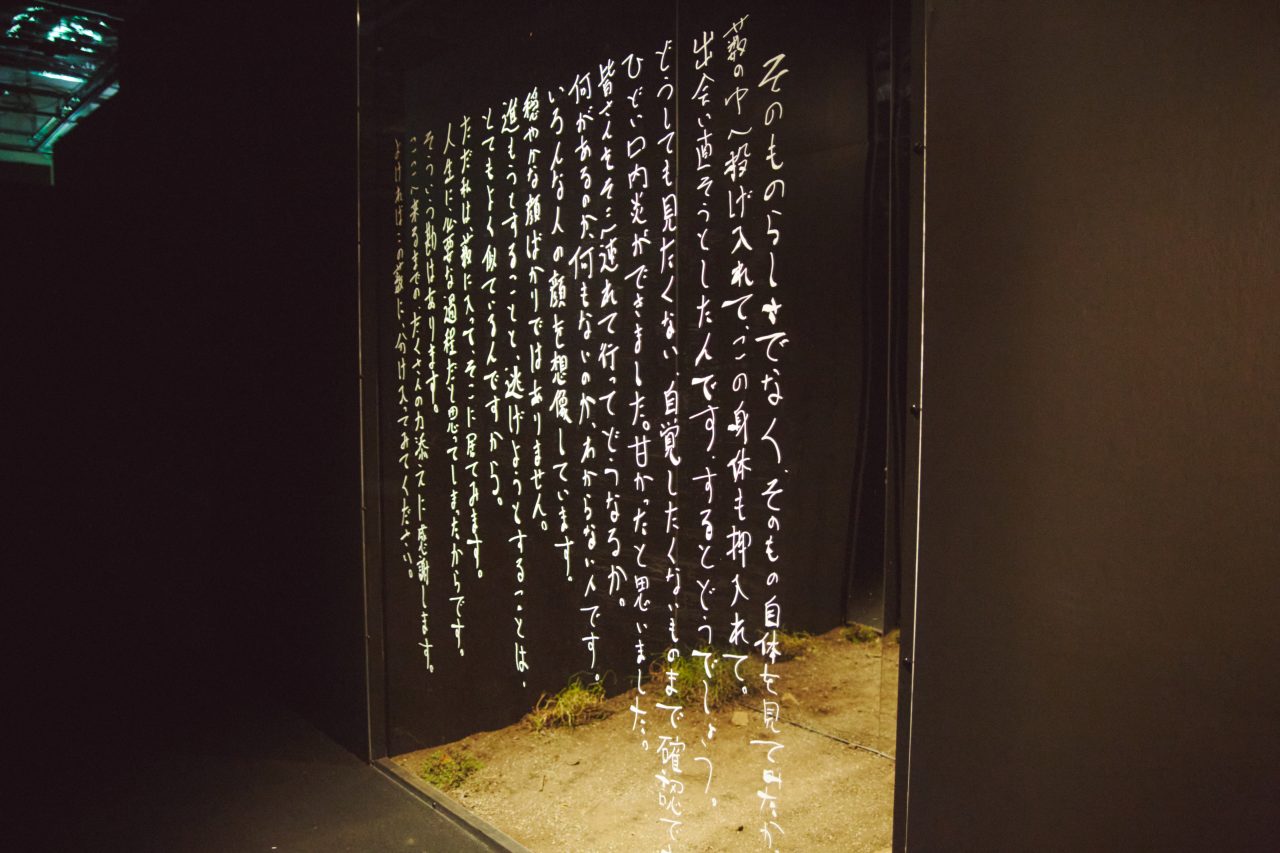 そのものらしさでなく、そのもの自体を見てみたか
藪の中へ投げ入れて、この身体も押入れて。
出会い直そうとしたんです。するとどうでしょう。
どうしても見たくない、自覚したくないものまで確認で
ひどい口内炎ができました。甘かったと思いました。
皆さんをそこに連れて行ってどうなるか。
何があるのか、何もないのか、わからない人です。
いろんな人の顔を想像しています。
穏やかな顔ばかりではありません。
進もうとすることと、逃げようとすることは、
とてもよく似ているんですから。
ただ私は藪に入って、そこに居てみます。
人生に必要な過程だと思ってしまったからです。
そういう勘はあります。
ここへ来るまでのたくさんの力添えに感謝します。
よければこの藪に、分け入ってみてください。